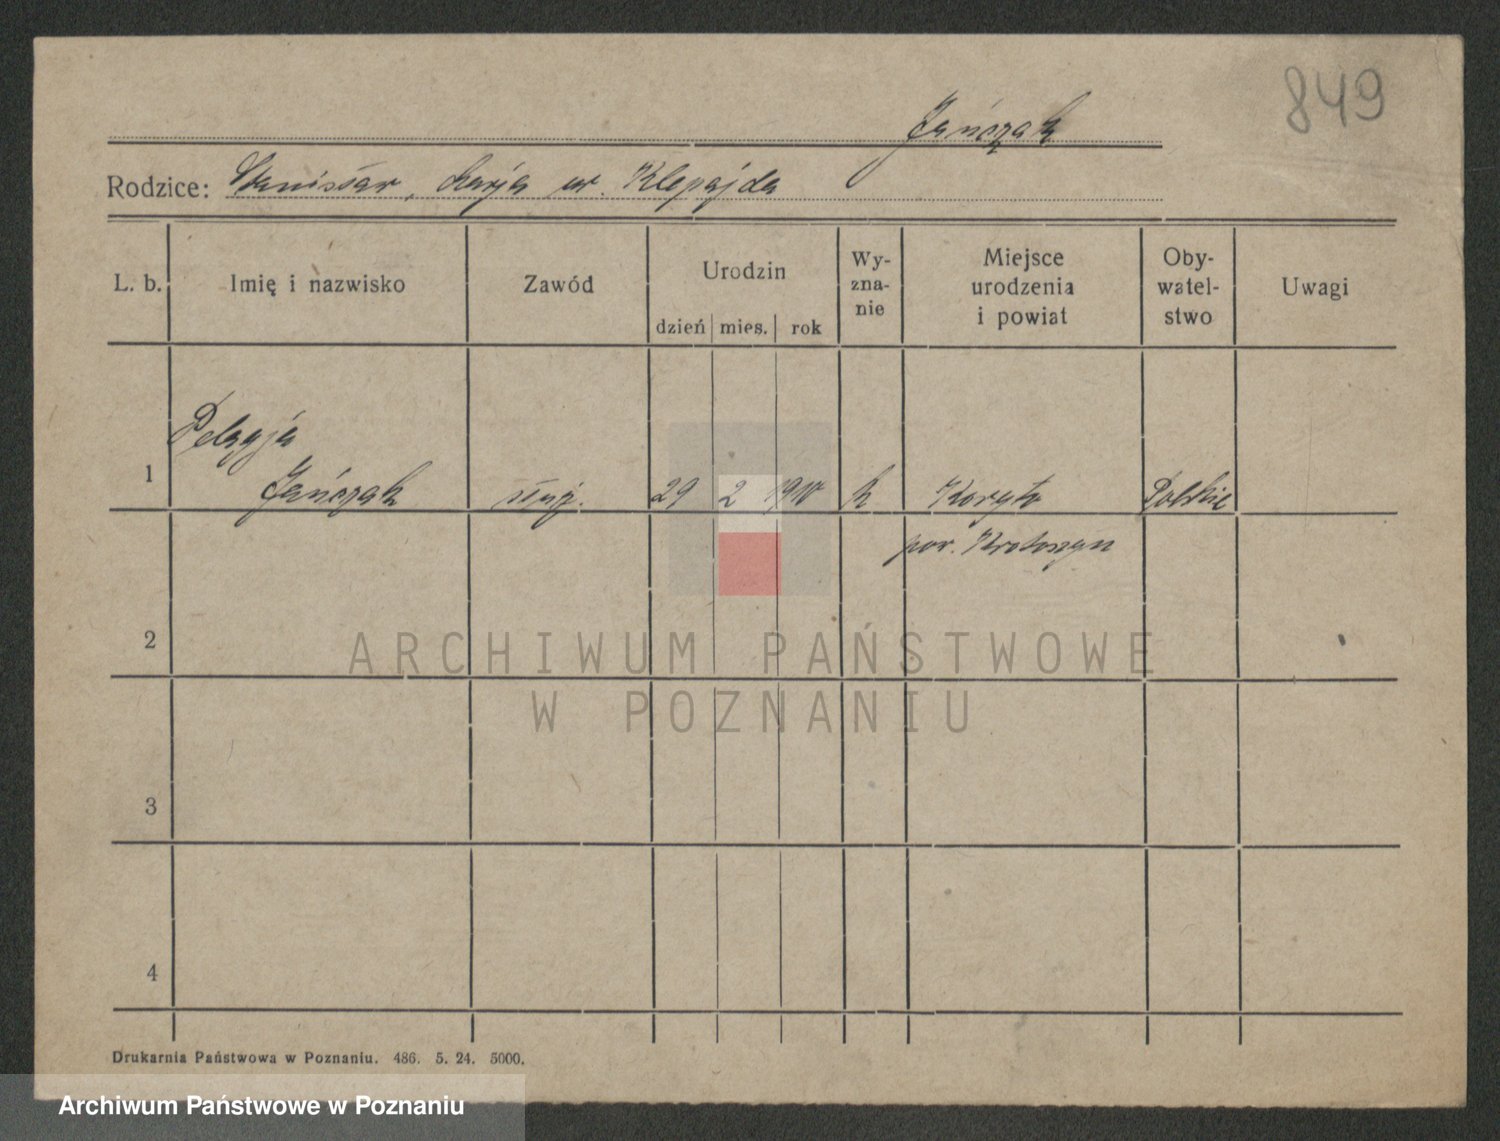 849
Jańczak
Rodzice: Stanisław, Marja ur. Klepajda
L. b. Imię i nazwisko Zawód Urodzin dzień mies. rok Wy-zna-nie Miejsce urodzenia i powiat Oby-watel-stwo Uwagi
Pelagja
1 Jańczak służ. 29 2 1910 k Koryta Polskie
pow. Krotoszyn
2
ARCHIWUM PAŃSTWOWE
W POZNANIU
3
4
Drukarnia Państwowa w Poznaniu. 486. 5. 24. 5000.
Archiwum Państwowe w Poznaniu